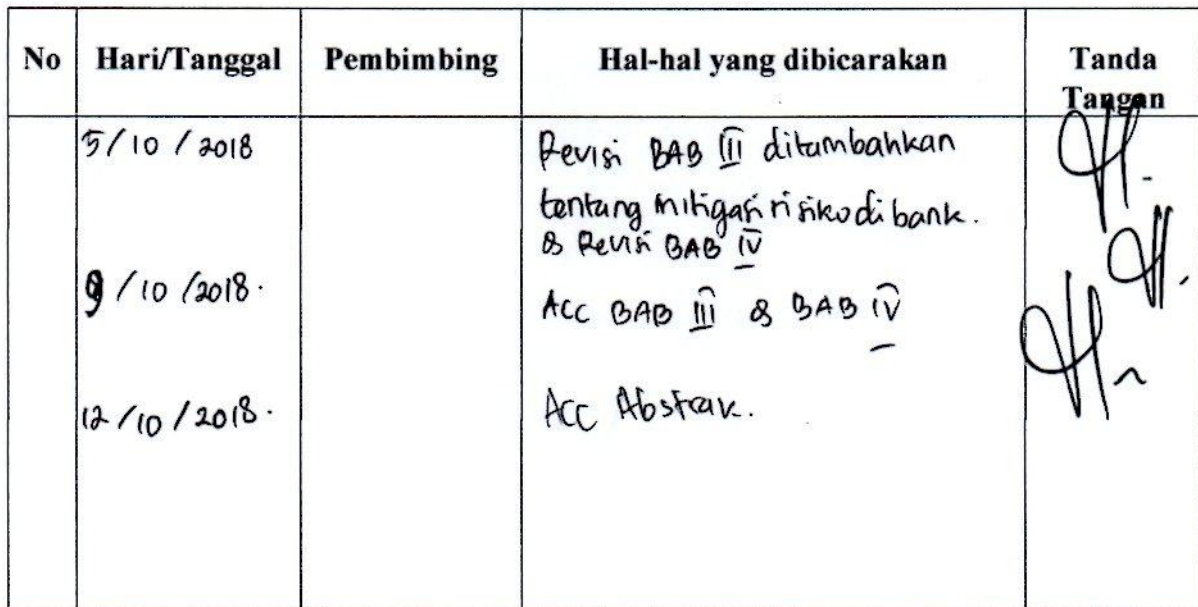 No Hari/Tanggal Pembimbing Hal-hal yang dibicarakan Tanda
Tangan
5/10/2018 Revisi BAB III ditambahkan
tentang mitigasi risiko di bank.
& Revisi BAB IV
9/10/2018. ACC BAB III & BAB IV
12/10/2018. ACC Abstrak.